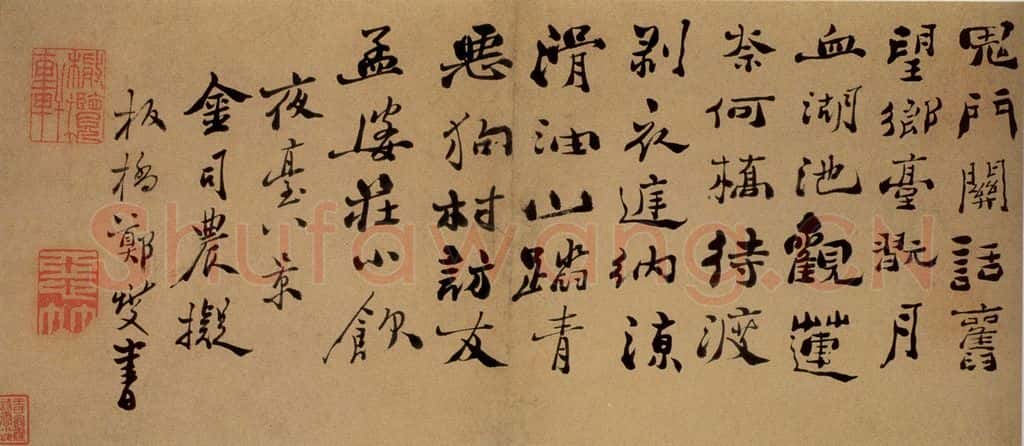 鬼門關話舊
望鄉臺翫月
血湖池觀蓮
奈何橋待渡
剥衣廷納涼
滑油山踏青
惡狗村訪友
孟婆莊小飲
夜臺八景
金司農擬
板橋鄭燮書
橄欖軒
Shufawang.CN